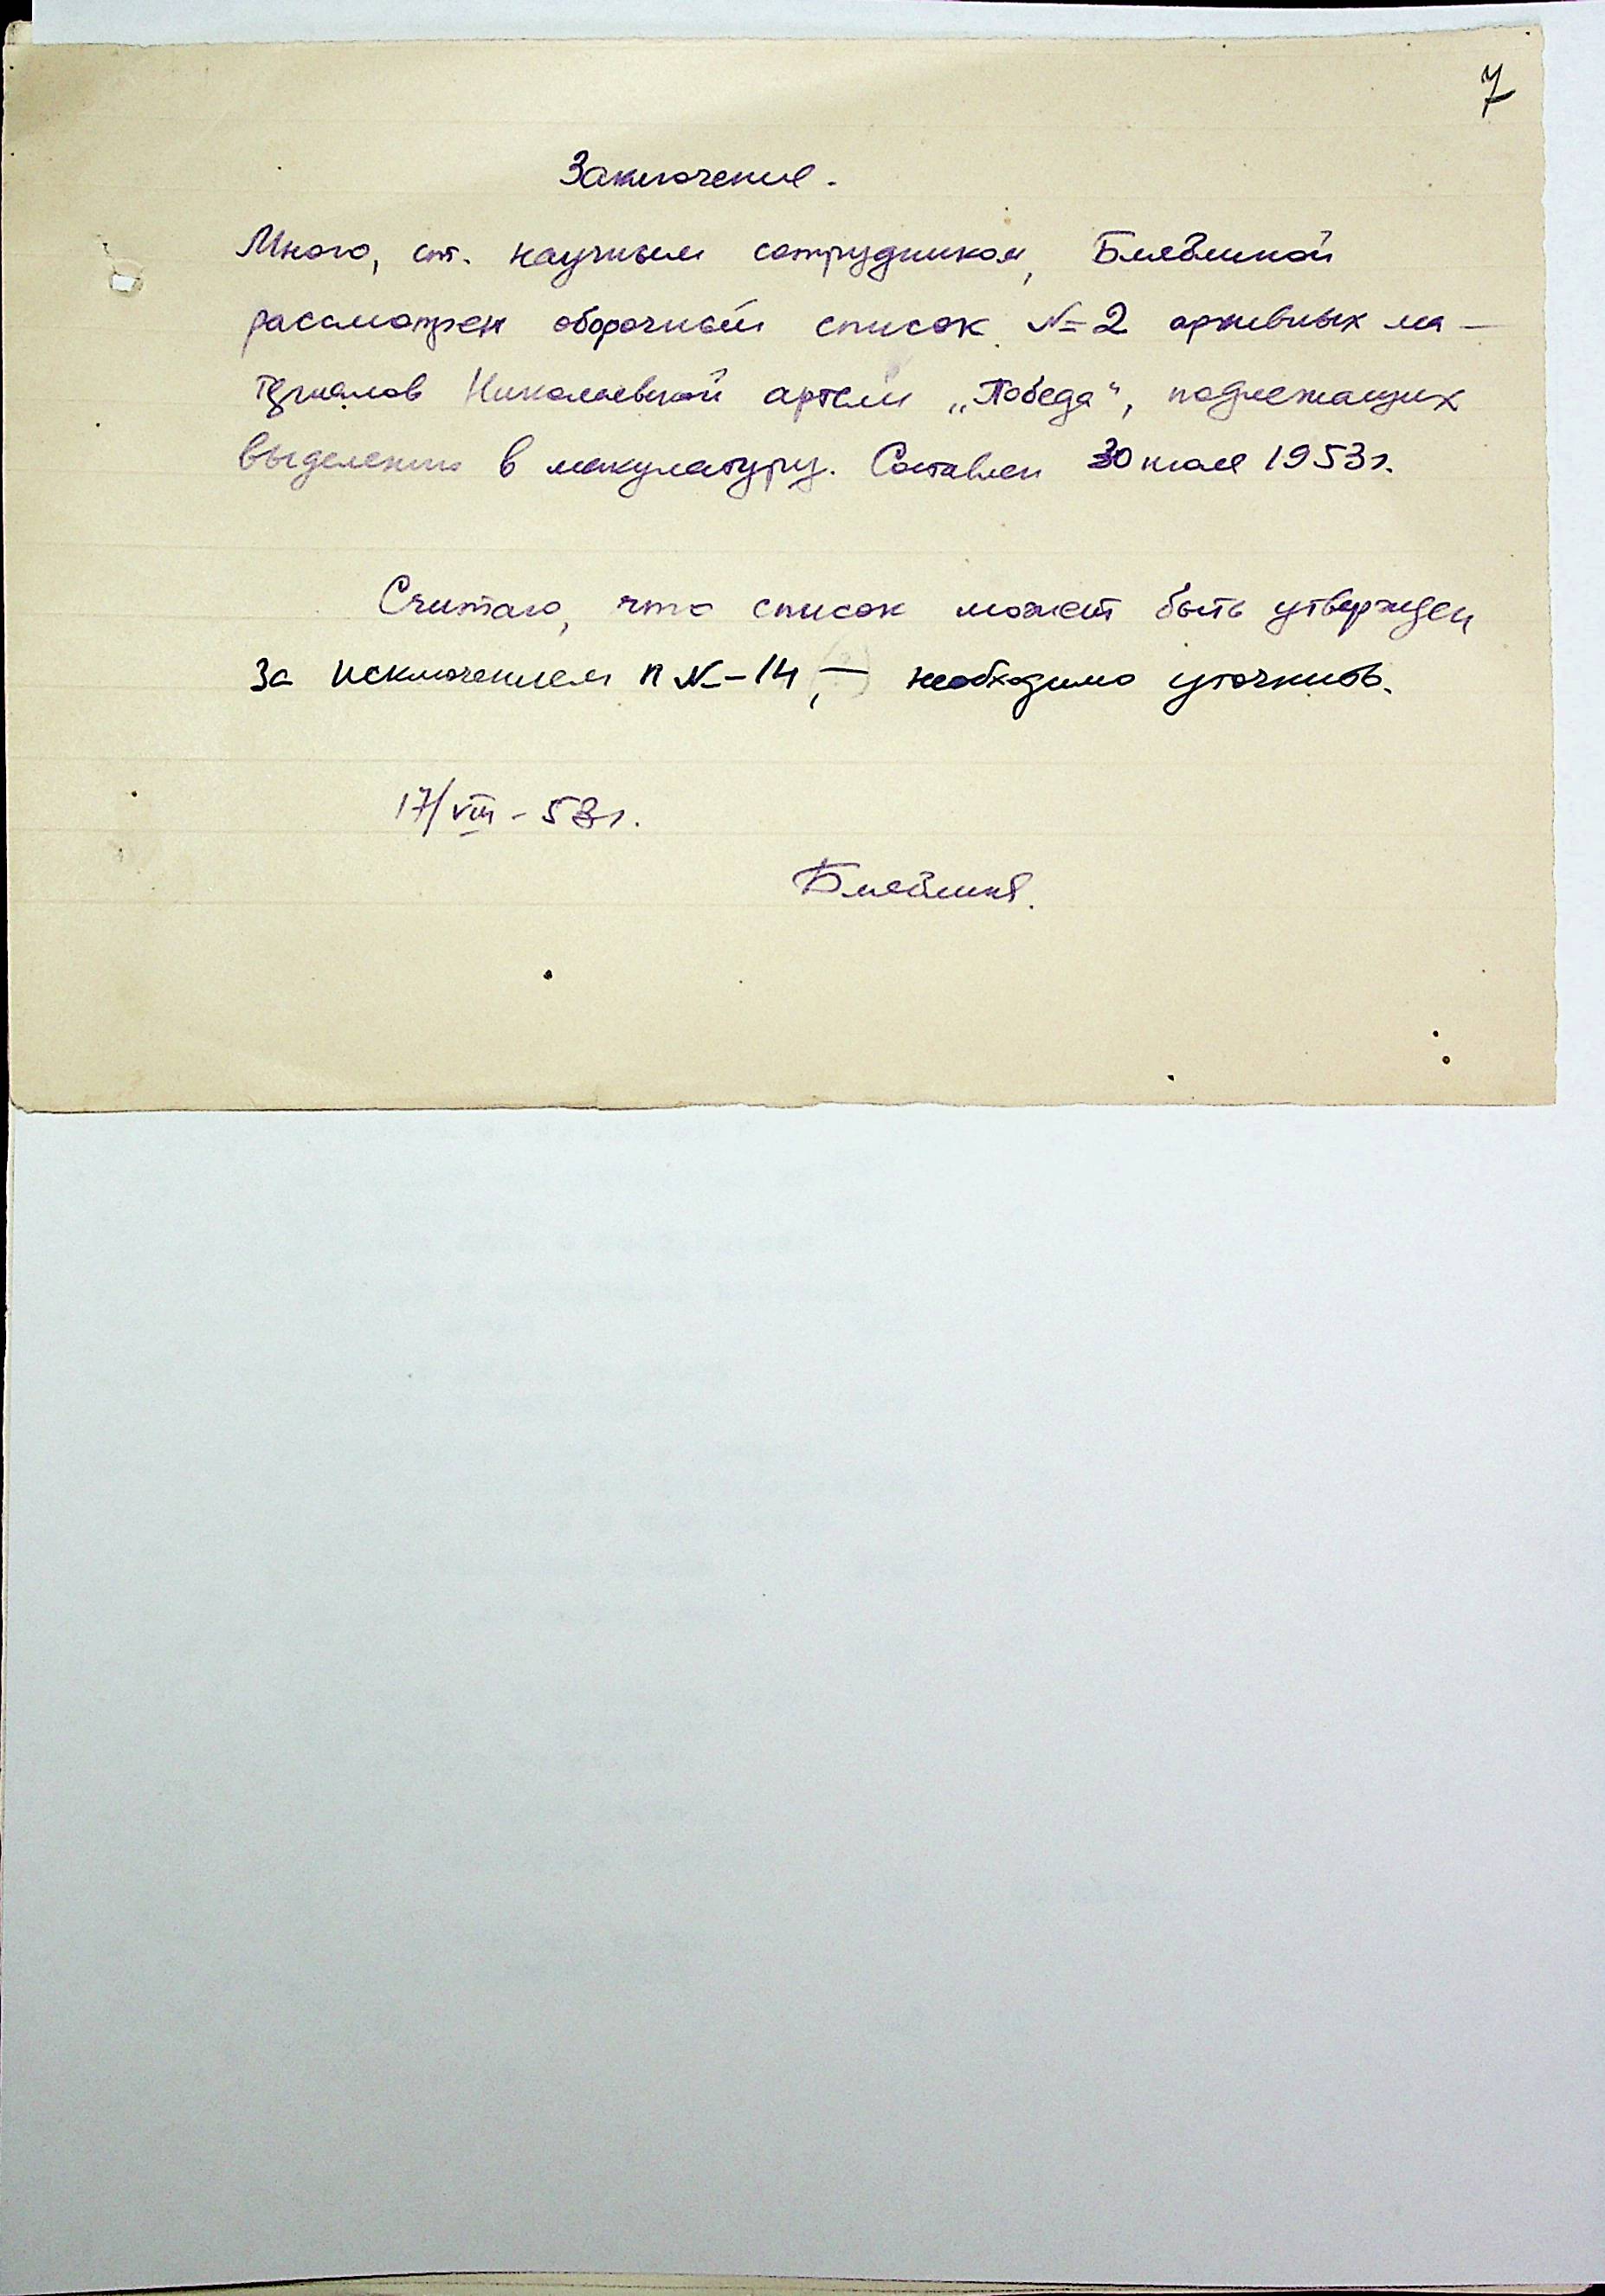 7
Заключение.
Мною, ст. научным сотрудником,
рассмотрен сборочный список №2 архивных ма-
териалов Николаевской артели „Победа", подлежащих
выделению в макулатуру. Составлен 30 июля 1953г.
Считаю, что список может быть утвержден
за исключением п №-14, — необходимо уточнить.
17/VIII - 53г.